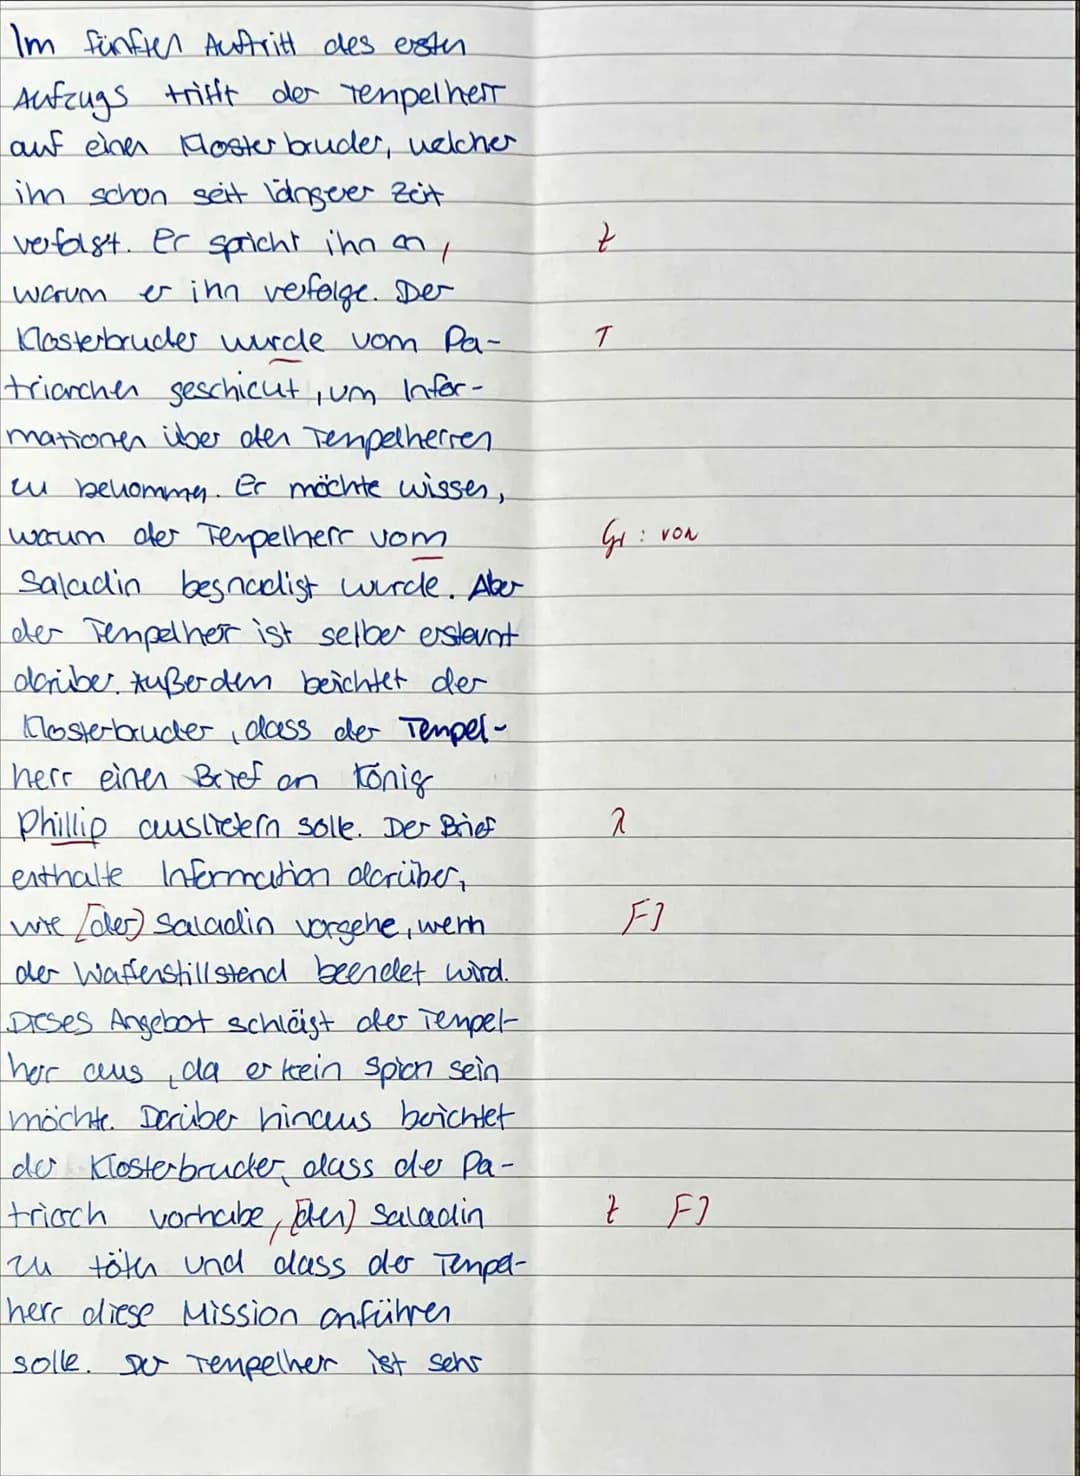 Im fünften Auftritt des ersten
Aufzugs trifft der Tempelherr
auf einen Klosterbruder, welcher
ihn schon seit längerer Zeit
verfolgt. Er spricht ihn an, Z
warum er ihn verfolge. Der
Klosterbruder wurde vom Pa- T
triarchen geschickt, um Infor-
mationen über den Tempelherren
zu bekommen. Er möchte wissen,
warum der Tempelherr vom Gr: von
Saladin begnadigt wurde. Aber
der Tempelherr ist selber erstaunt
darüber. Außerdem berichtet der
Klosterbruder, dass der Tempel-
herr einen Brief an König
Phillip ausliefern solle. Der Brief R
enthalte Information darüber,
wie [der] Saladin vorgehe, wenn F]
der Waffenstillstand beendet wird.
Dieses Angebot schlägt der Tempel-
herr aus, da er kein Spion sein
möchte. Darüber hinaus berichtet
der Klosterbruder, dass der Pa-
triarch vorhabe, [den] Saladin Z F]
zu töten und dass der Tempel-
herr diese Mission anführen
solle. Der Tempelherr ist sehr